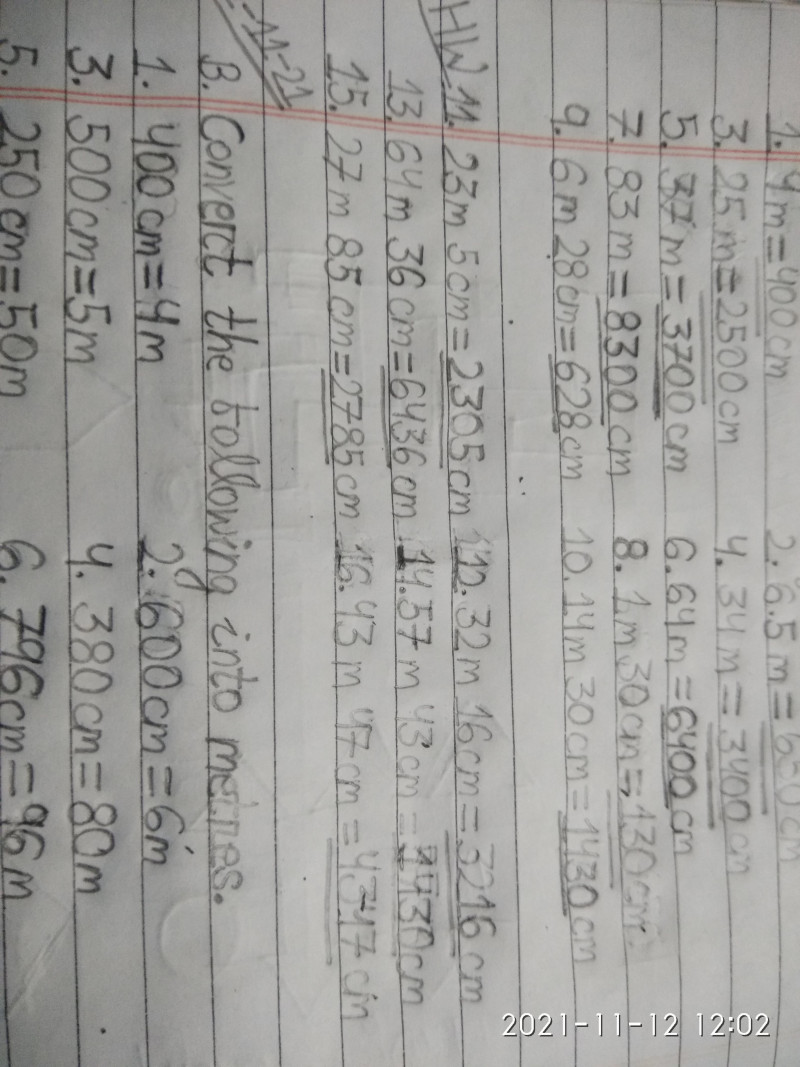 1. 4m=400cm 2. 6.5m=650cm
3. 25m=2500cm 4. 34m=3400cm
5. 37m=3700cm 6. 64m=6400cm
7. 83m=8300cm 8. 1m 30cm=130cm
9. 6m 28cm=628cm 10. 14m 30cm=1430cm
HW 11. 23m 5cm=2305cm 12. 32m 16cm=3216cm
13. 64m 36cm=6436cm 14. 57m 43cm=
15. 27m 85cm=2785cm 16. 43m 47cm=4347cm
11-21
B. Convert the following into metres.
1. 400cm=4m 2. 600cm=6m
3. 500cm=5m 4. 380cm=80m
5. 250cm=50m 6. 796cm=96m
2021-11-12 12:02